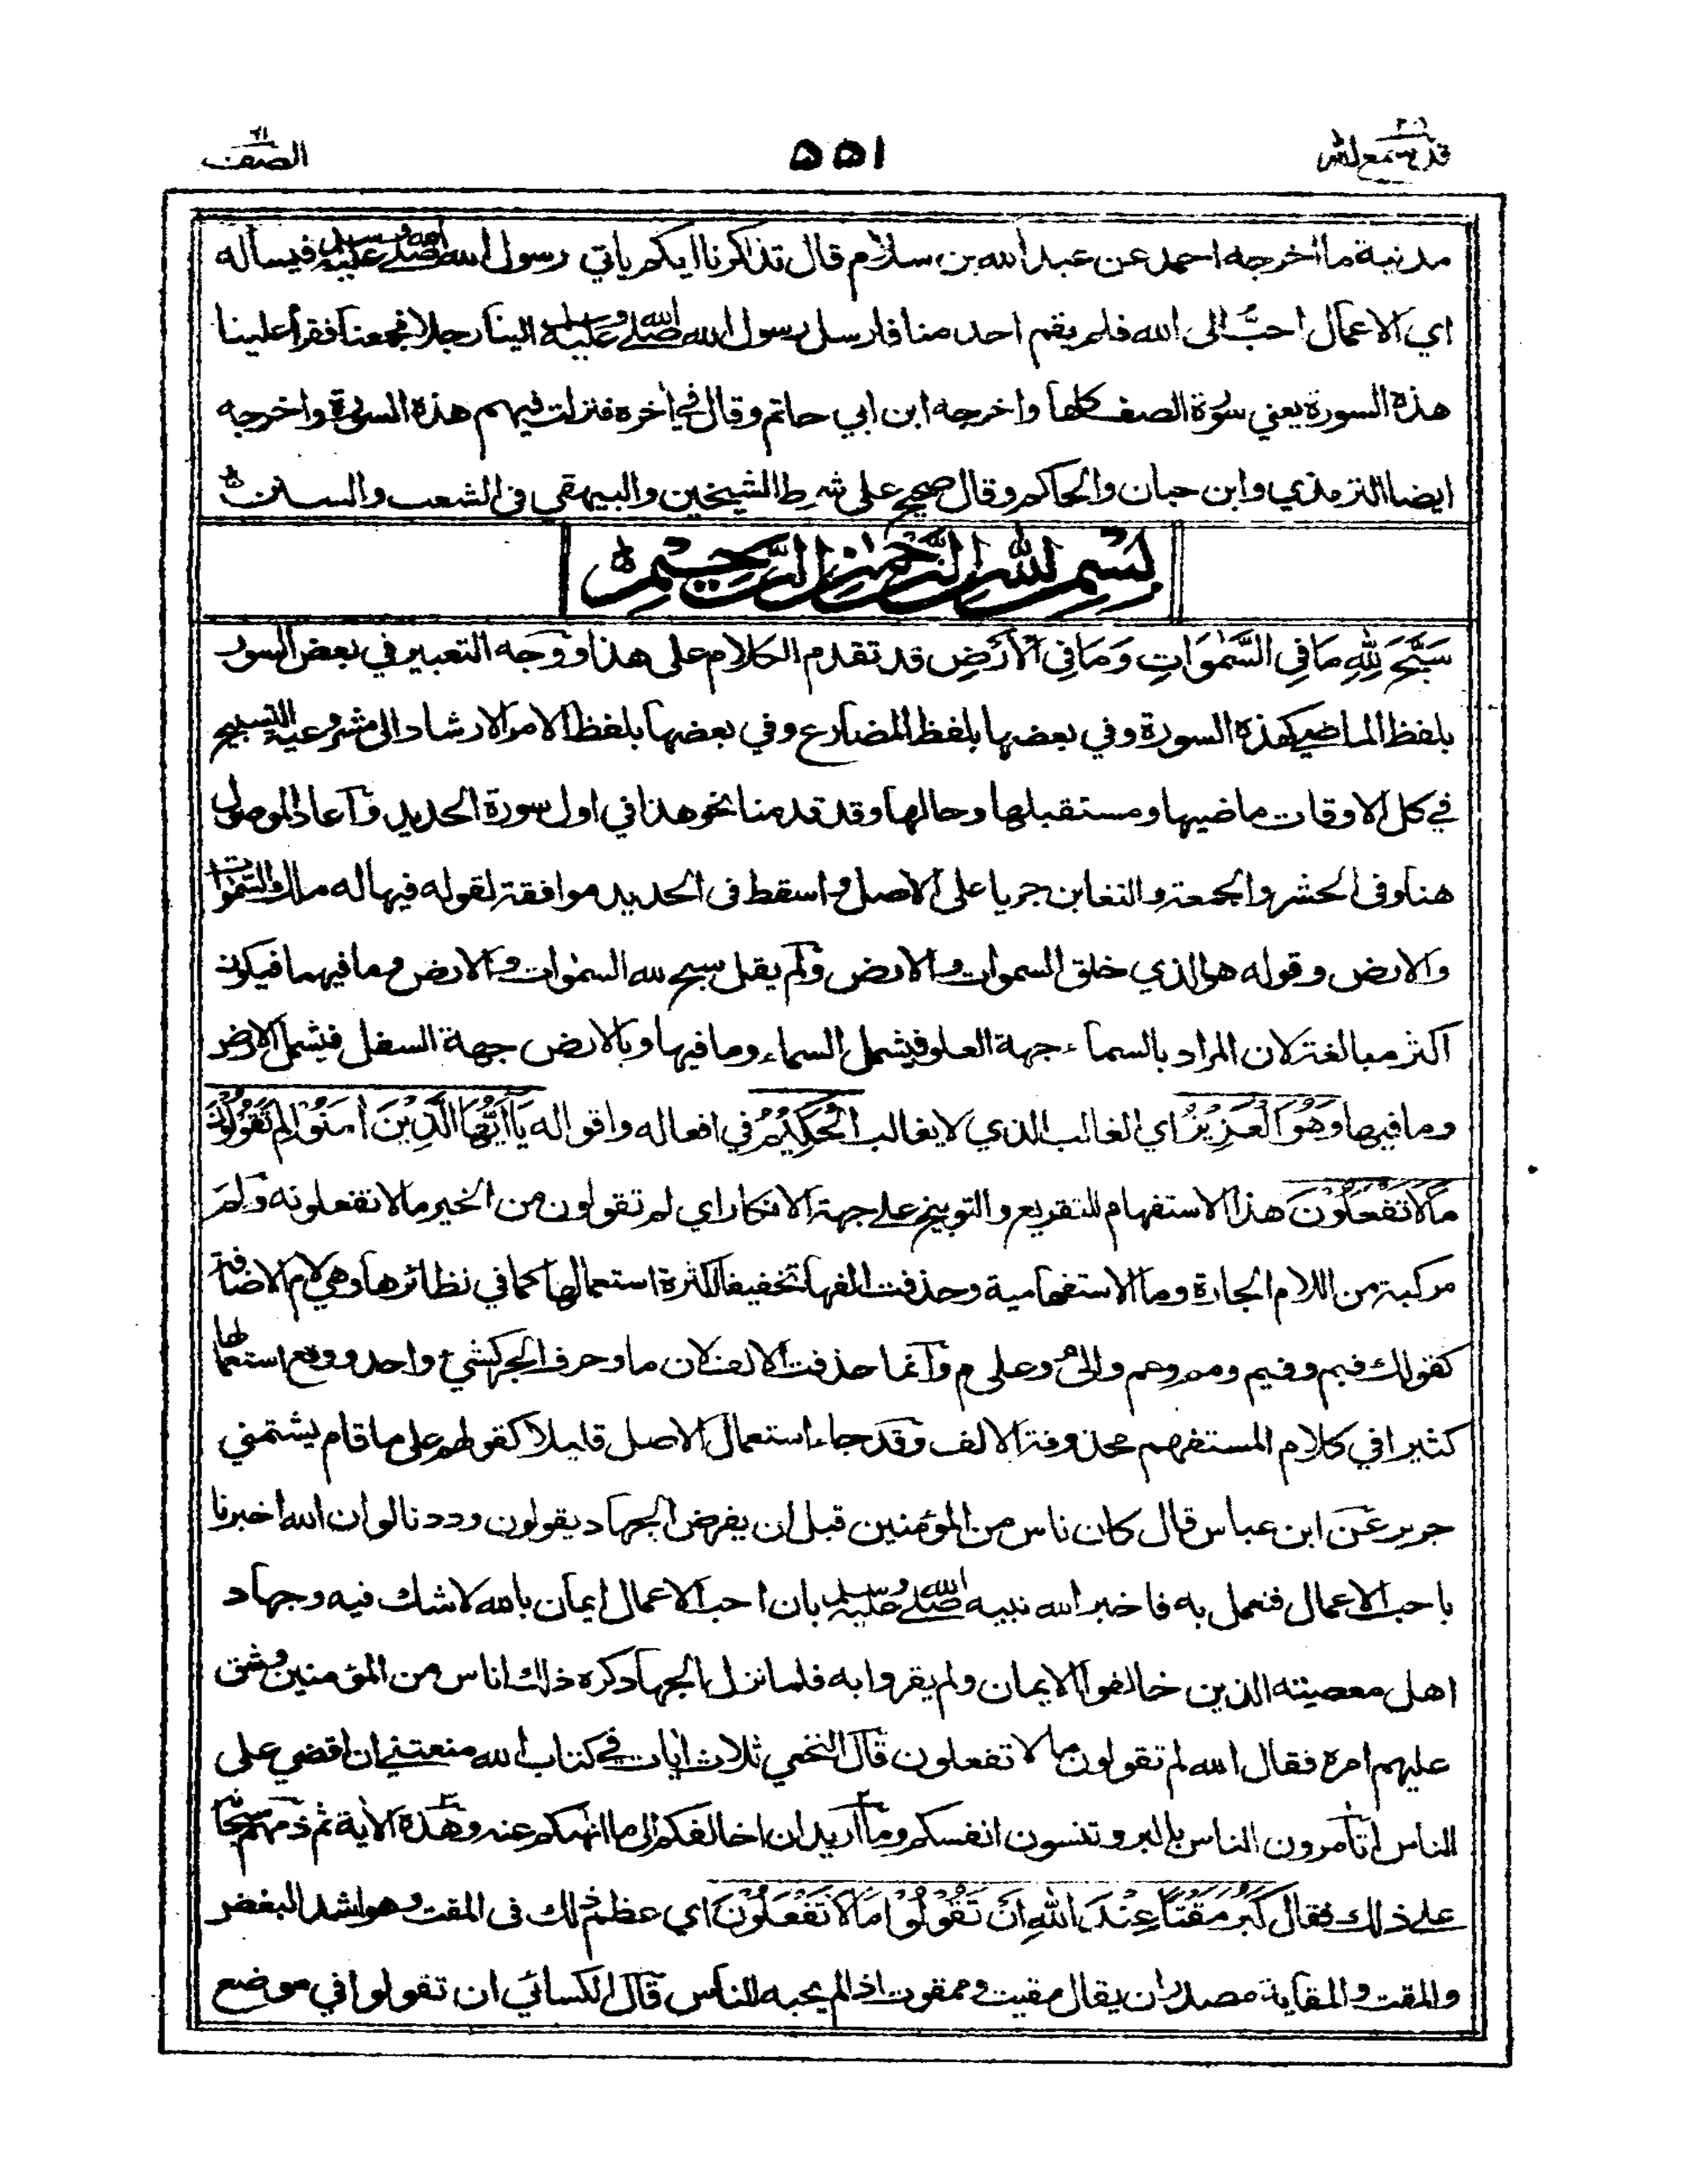 قد سمع الله ٢٨ ٥٥١ الصف ٦١
مدنية ما اخرجه احمد عن عبد الله بن سلام قال تذاكرنا ايكم ياتي رسول الله صلى الله عليه وسلم فيساله
اي الاعمال احبّ الى الله فلم يقم احد منا فارسل رسول الله صلى الله عليه وسلم الينا رجلا فجمعنا فقرأ علينا
هذه السورة يعني سورة الصف كلها واخرجه ابن ابي حاتم وقال في اخره فنزلت فيهم هذه السورة واخرجه
ايضا الترمذي وابن حبان والحاكم وقال صحيح على شرط الشيخين والبيهقي في الشعب والسنن
بسم الله الرحمن الرحيم
سَبَّحَ لِلّٰهِ مَا فِي السَّمٰوَاتِ وَمَا فِي الْأَرْضِ قد تقدم الكلام على هذا ووجه التعبير في بعض السور
بلفظ الماضي كهذه السورة وفي بعضها بلفظ المضارع وفي بعضها بلفظ الامر الارشاد الى مشروعية التسبيح
في كل الاوقات ماضيها ومستقبلها وحالها وقد قدمنا نحو هذا في اول سورة الحديد وآعاد الموصول
هنا وفي الحشر والجمعة والتغابن جريا على الاصل واسقط في الحديد موافقة لقوله فيها له ملك السموات
والارض وقوله هو الذي خلق السموات والارض ولم يقل سبح لله السموات والارض وما فيهما فيكون
اكثر مبالغة لان المراد بالسماء جهة العلو فيشمل السماء وما فيها وبالارض جهة السفل فيشمل الارض
وما فيها وَهُوَ الْعَزِيْزُ اي الغالب الذي لا يغالب الْحَكِيْمُ في افعاله واقواله يَآ اَيُّهَا الَّذِيْنَ اٰمَنُوْا لِمَ تَقُوْلُوْنَ
مَا لَا تَفْعَلُوْنَ هذا الاستفهام للتقريع والتوبيخ على جهة الانكار اي لم تقولون من الخير ما لا تفعلونه ولم
مركبة من اللام الجارة وما الاستفهامية وحذفت الفها تخفيفا لكثرة استعمالها كما في نظائرها وهي لام الاضافة
كقولك فبم وفيم ومم وعم والى م وعلى م وآنما حذفت الالف لان ما وحرف الجر كشيء واحد ووقع استعمالها
كثيرا في كلام المستفهم محذوفة الالف وقد جاء استعمال الاصل قليلا كقولهم على ما قام يشتمني
جرير عن ابن عباس قال كان ناس من المؤمنين قبل ان يفرض الجهاد يقولون وددنا لو ان الله اخبرنا
باحب الاعمال فنعمل به فاخبر الله نبيه صلى الله عليه وسلم بان احب الاعمال ايمان بالله لا شك فيه وجهاد
اهل معصيته الذين خالفوا الايمان ولم يقروا به فلما نزل الجهاد كره ذلك اناس من المؤمنين وشق
عليهم امره فقال الله لم تقولون ما لا تفعلون قال النخعي ثلاث ايات في كتاب الله منعتني ان اقضي على
الناس اتأمرون الناس بالبر وتنسون انفسكم وما اريد ان اخالفكم الى ما انهكم عنه وهذه الاية ثم ذمهم سبحانه
على ذلك فقال كَبُرَ مَقْتًا عِنْدَ اللهِ اَنْ تَقُوْلُوْا مَا لَا تَفْعَلُوْنَ اي عظم ذلك في المقت وهو اشد البغض
والمقت والمقاية مصدران يقال مقيت وممقوت اذا لم يحبه الناس قال الكسائي ان تقولوا في موضع